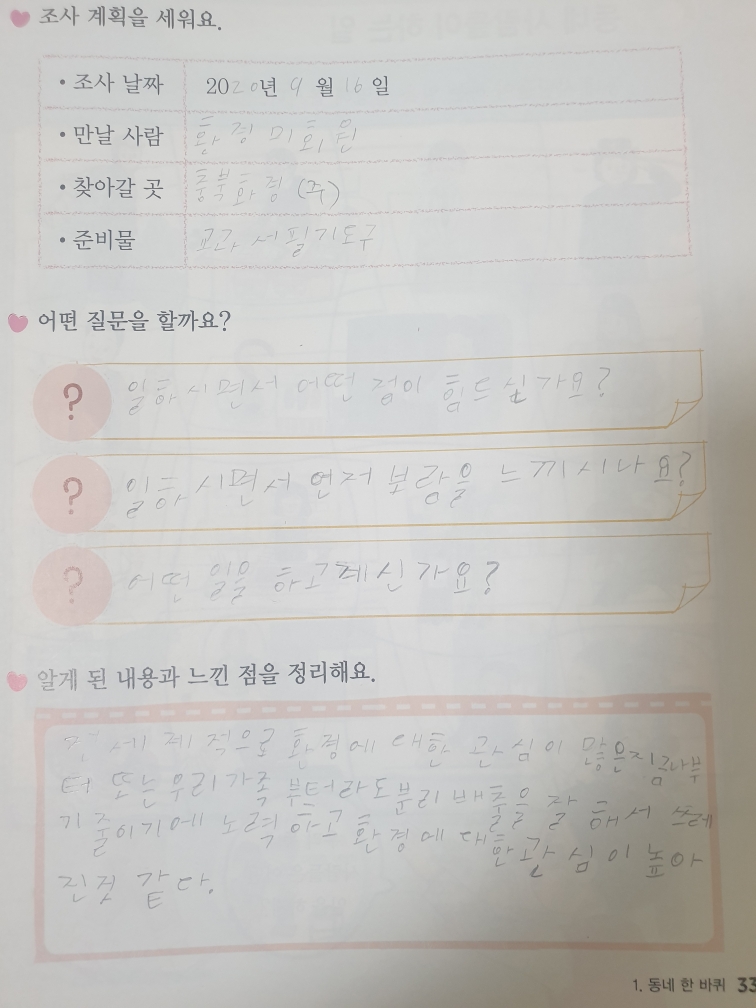 조사 계획을 세워요.
• 조사 날짜 2020년 9월 16일
• 만날 사람 환경미화원
• 찾아갈 곳 충북환경 (주)
• 준비물 교과서필기도구
어떤 질문을 할까요?
? 일하시면서 어떠떤 점이 힘드신가요?
? 일하시면서 언저 보람을 느끼시나요?
? 어떤 일을 하고 계신가요?
알게 된 내용과 느낀 점을 정리해요.
세계적으로 환경에 대한 관심이 많은지금나부
터 또는 우리가족 부터라도 분리배출을 잘 해서 쓰레
기 줄이기에 노력하고 환경에 대한관심이 높아
진것 같다.
1. 동네 한 바퀴 33